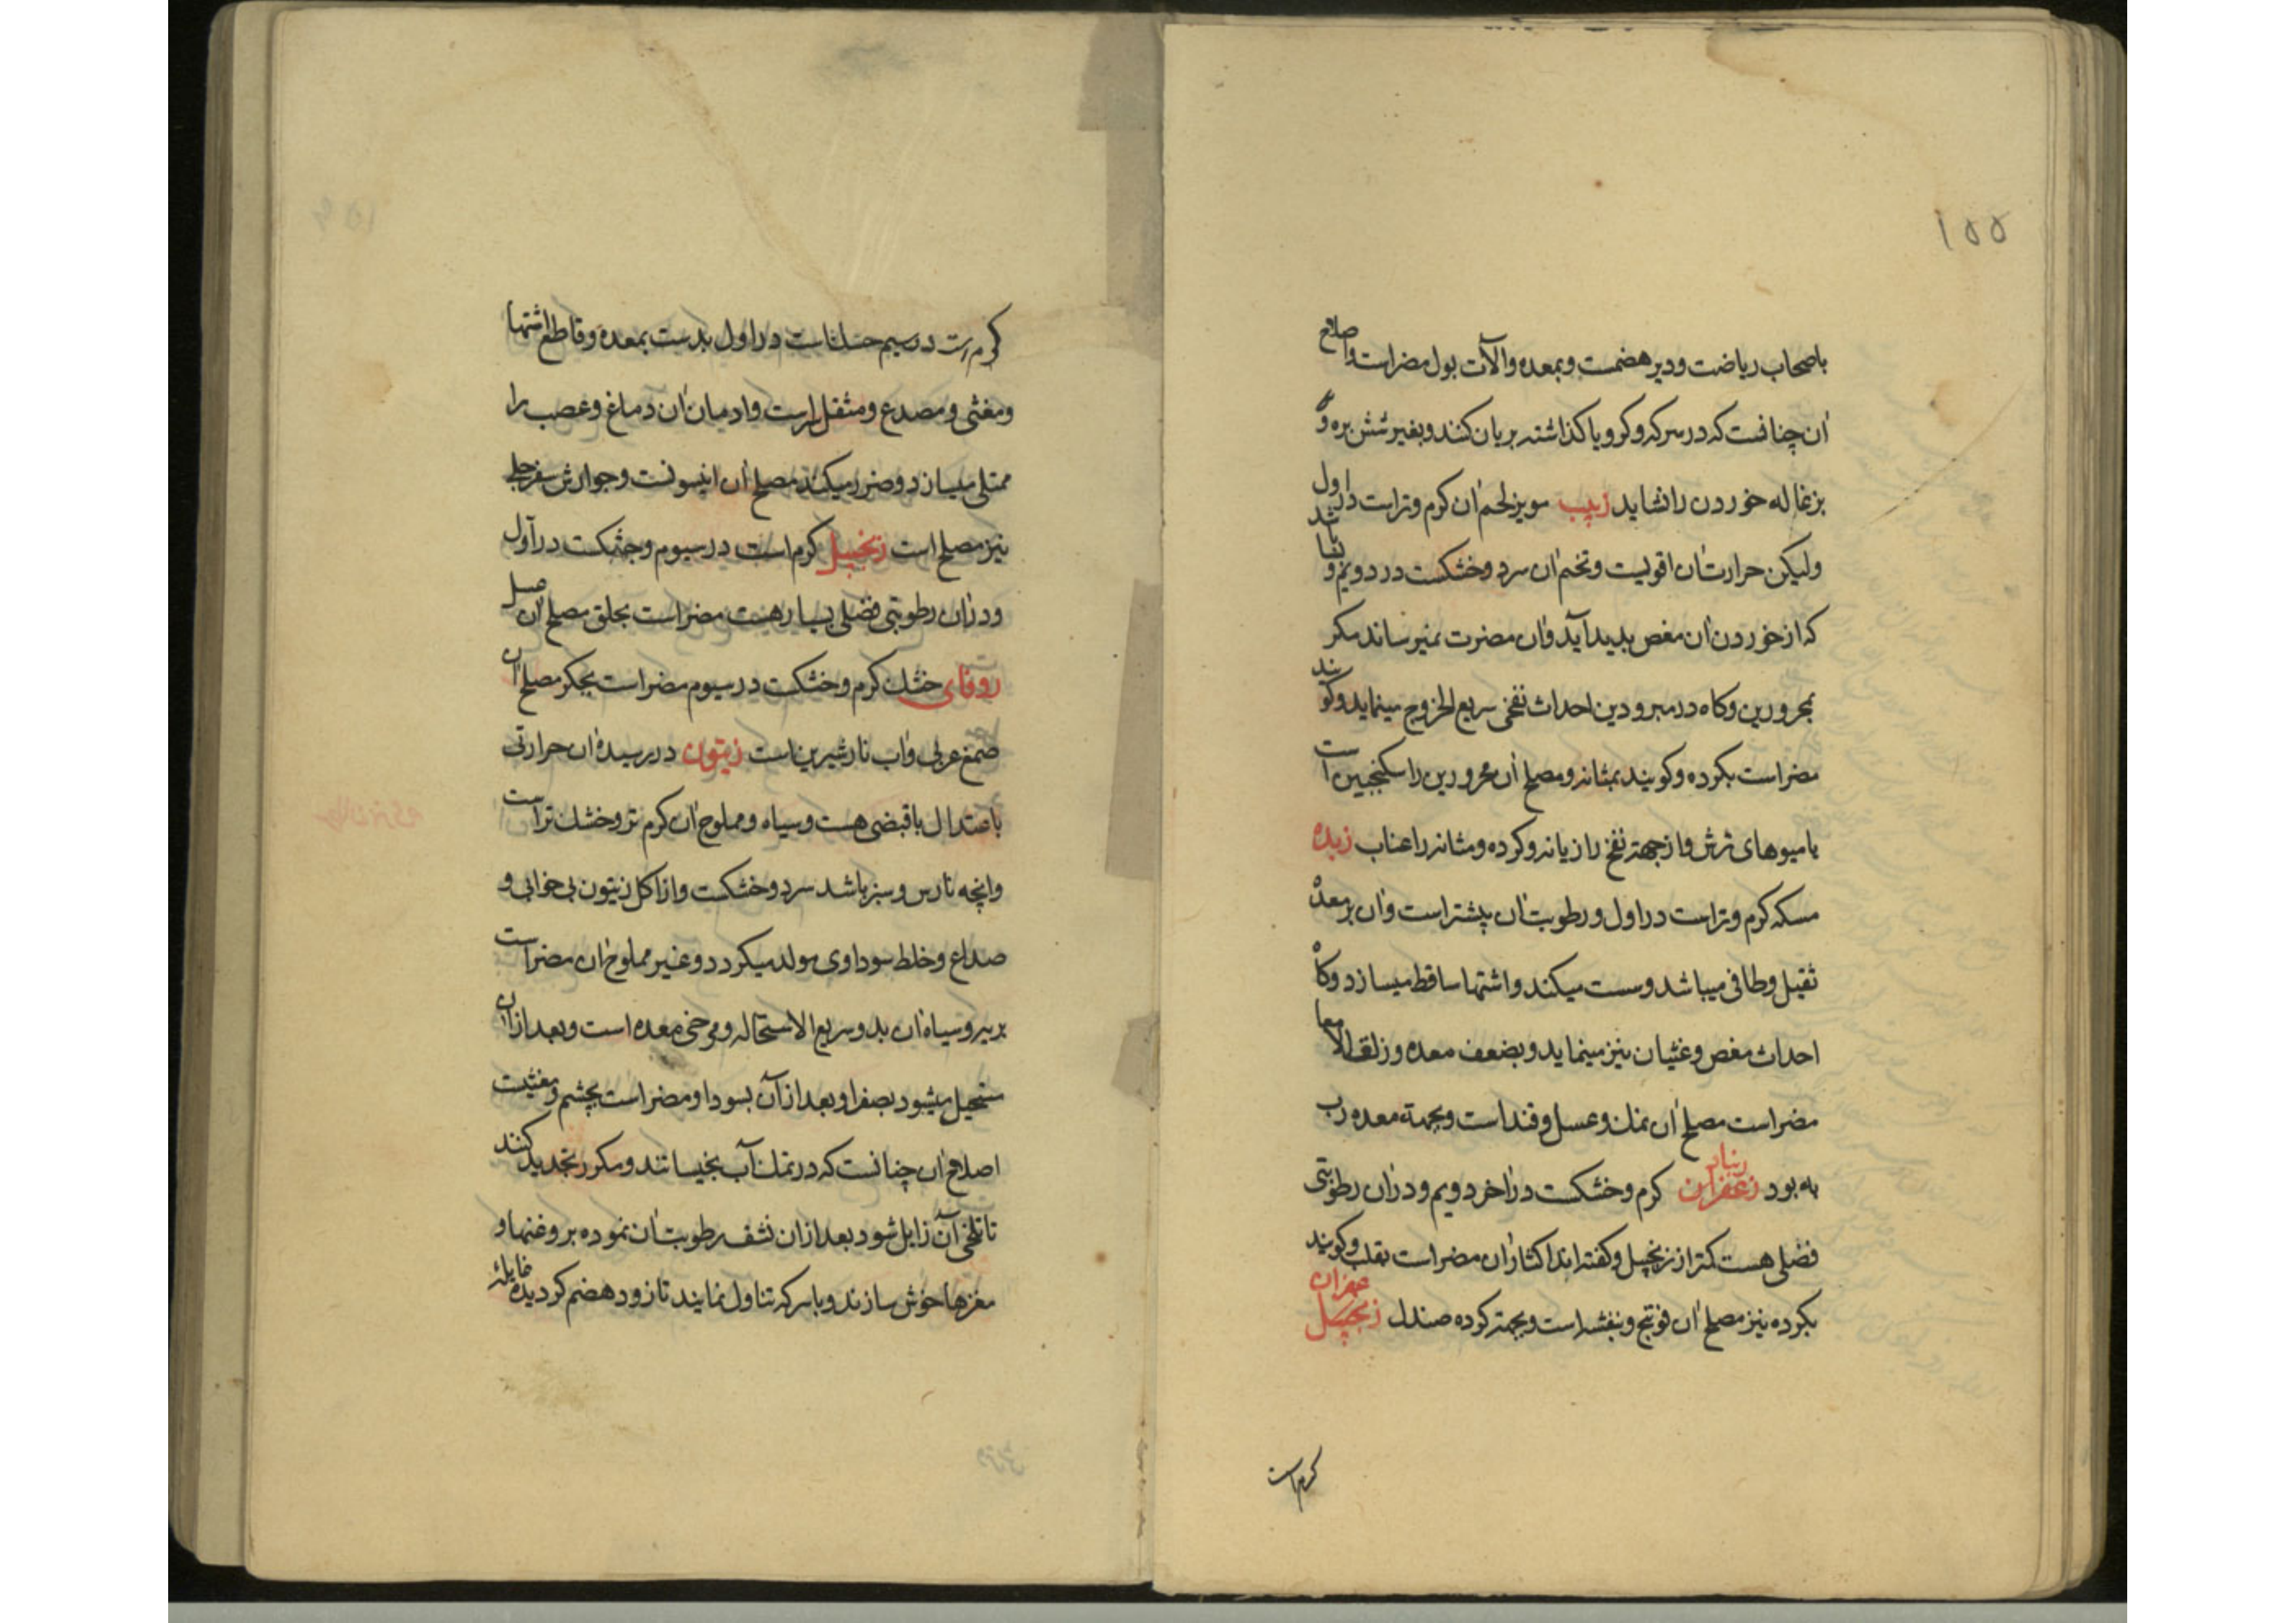 ۱۵۵
باصحاب ریاضت و دیر هضمست و بمعده والآت بول مضراست واصلاح
آن چنانست که در سرکه وکرویا کذاشته بریان کنند وبغیر شش بره و
بزغاله خوردن را نشاید زبیب مویز لحم آن کرم وتراست در اول
ولیکن حرارت آن اقویست وتخم آن سرد وخشکست در دویم و
که از خوردن آن مغص بدید آید وآن مضرت نمیرساند مکر
بمحرورین وکاه در مبرودین احداث نفخی سریع الخروج مینماید وکویند
مضراست بکرده وکویند بمثانه ومصلح آن محرورین را سکنجبین است
یا میوهای ترش واز جهة نفخ رازیانه وکرده ومثانه را عناب زبده
مسکه کرم وتراست در اول ورطوبت آن پیشتر است وآن برمعده
ثقیل وطافی میباشد وسست میکند واشتها ساقط میسازد وکاه
احداث مغص وغثیان نیز مینماید وبضعف معده وزلق الامعا
مضراست مصلح آن نمک وعسل وقند است وبجهة معده رب
به بود زعفران کرم وخشکست در آخر دویم ودرآن رطوبتی
فضلی هست کمتر از زنجپیل وکفته اند اکثار آن مضراست بقلب وکویند
بکرده نیز مصلح آن فوتنج وبنفشه است وبجهة کرده صندل زنجپیل
کرم است
کرم است در سیم خشک است در اول بدست بمعده وقاطع اشتها
ومغثی ومصدع ومثقل راست وادمان آن دماغ وعصب را
ممتلی میسازد وضرر میکند مصلح آن انیسونست وجوارش سفرجلی
نیز مصلح است زنجپیل کرم است در سیوم وخشکست در اول
ودرآن رطوبتی فضلی بسیار هست مضراست بحلق مصلح آن عسل
زوفای خشک کرم وخشکست در سیوم مضراست بجکر مصلح آن
صمغ عربی وآب نار شیرین است زیتون در رسیده آن حرارتی
باعتدال باقبضی هست وسیاه ومملوح آن کرم تر وخشک تراست
وآنچه نارس وسبز باشد سرد وخشکست واز اکل زیتون بی خوابی و
صداع وخلط سوداوی مولد میکردد وغیر مملوح آن مضراست
بریه وسیاه آن بد وسریع الاستحاله ومرخی معده است وبعد از آن
مستحیل میشود بصفرا وبعد از آن بسودا ومضراست بچشم ومغثیست
اصلاح آن چنانست که در نمک آب بخیسانند ومکرر تجدید کنند
تا تلخی آن زایل شود بعد از آن نشف رطوبت آن نموده بروغنها و
مغزها خوش سازند وباسرکه تناول نمایند تا زود هضم کردیده غایلهٔ